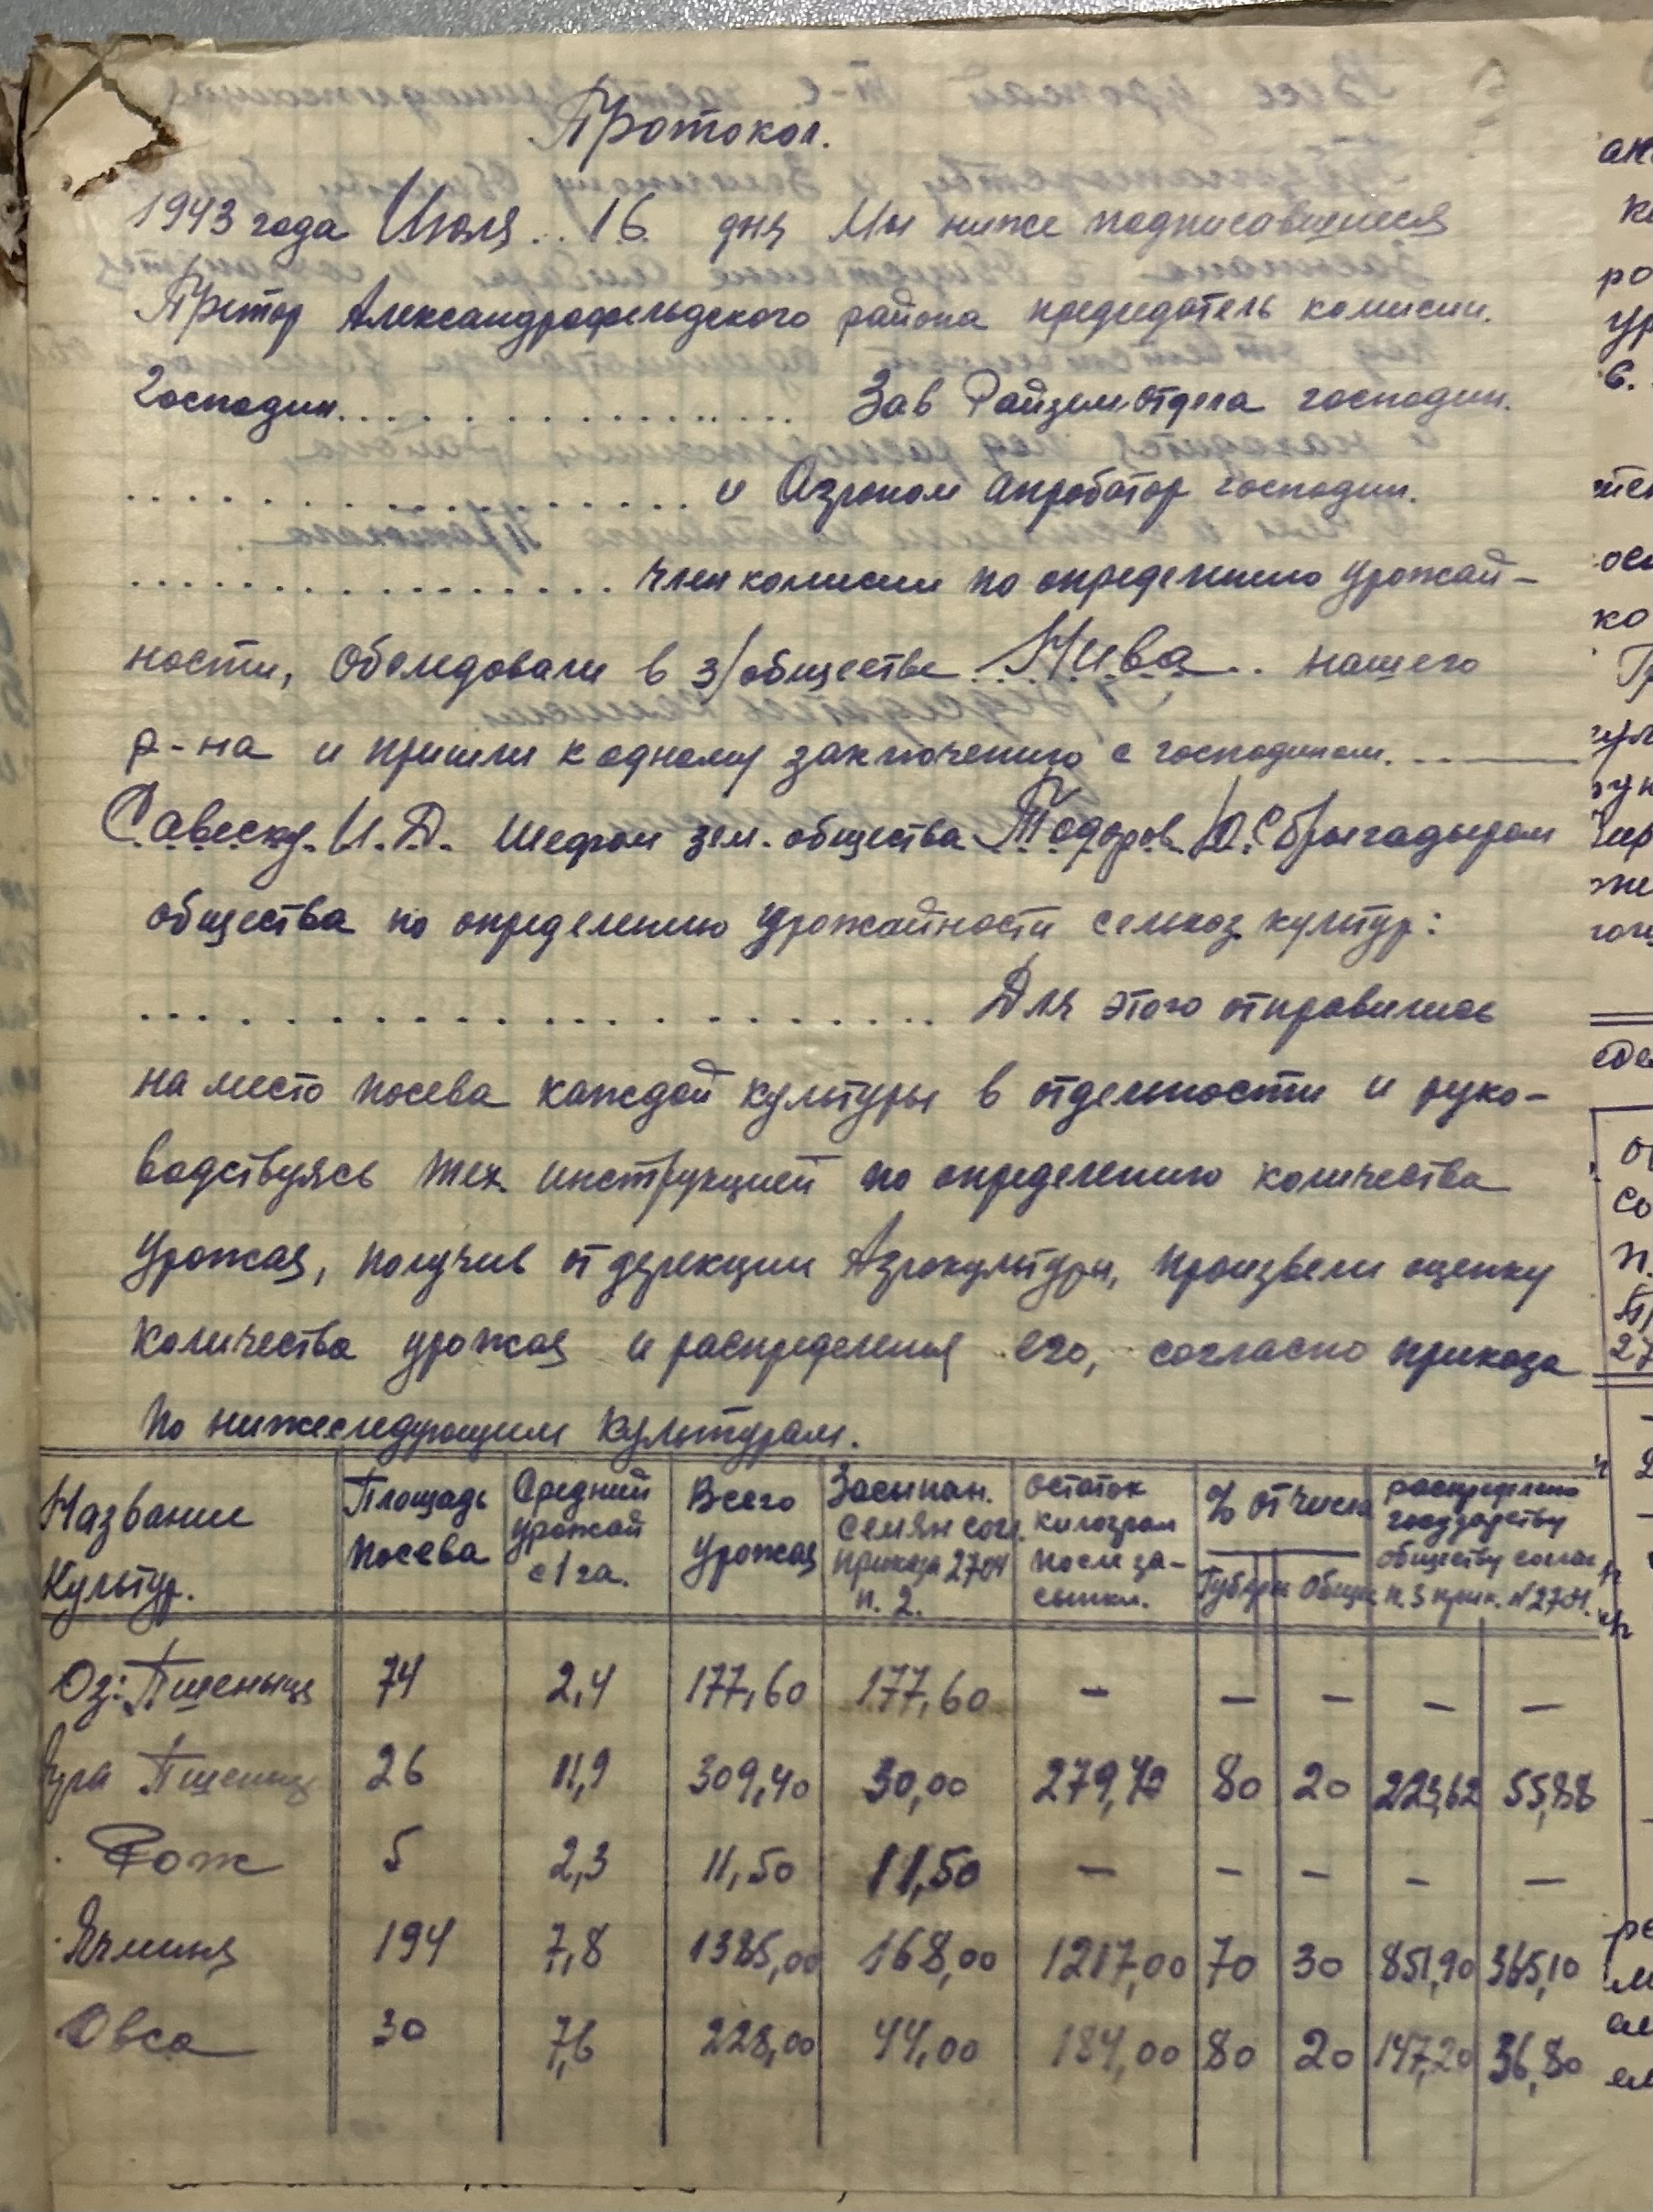 Протокол.
1943 года Июля .. 16 дня Мы ниже подписавшиеся
Претор Александрофельдского района председатель комисии.
Господин................... Зав Райземотдела господин.
................... и Агроном апробатор господин.
................. член комисии по определению урожай-
ности, обследовали в з/обществе ..Нива.. нашего
р-на и пришли к одному заключению с господином....
Савеску. И. Д. Шефом зем. общества Тодоров Ю.С бригадыром
общества по определению урожайности сельхоз культур:
....................... Для этого отправились
на место посева каждой культуры в отдельности и руко-
водствуясь тех. инструкцией по определению количества
урожая, получив от дерекции Агрокультуры, произвели оценку
количества урожая и распределения его, согласно приказа
по нижеследующим культурам.
Название Культур. | Площадь посева | Средний урожай с 1 га. | Всего урожая | Засыпан. семян согл. приказа 2704 п. 2. | остаток килограм после за-сыпки. | % от числа Губерн Общес | распределено государству обществу соглас п. 3 прик. №2704.
Оз: Пшеныця 74 2,4 177,60 177,60 – – – – –
Яра Пшениця 26 11,9 309,40 30,00 279,40 80 20 223,62 55,88
Рож 5 2,3 11,50 11,50 – – – – –
Ячменя 194 7,8 1385,00 168,00 1217,00 70 30 851,90 365,10
Овса 30 7,6 228,00 44,00 184,00 80 20 147,20 36,80